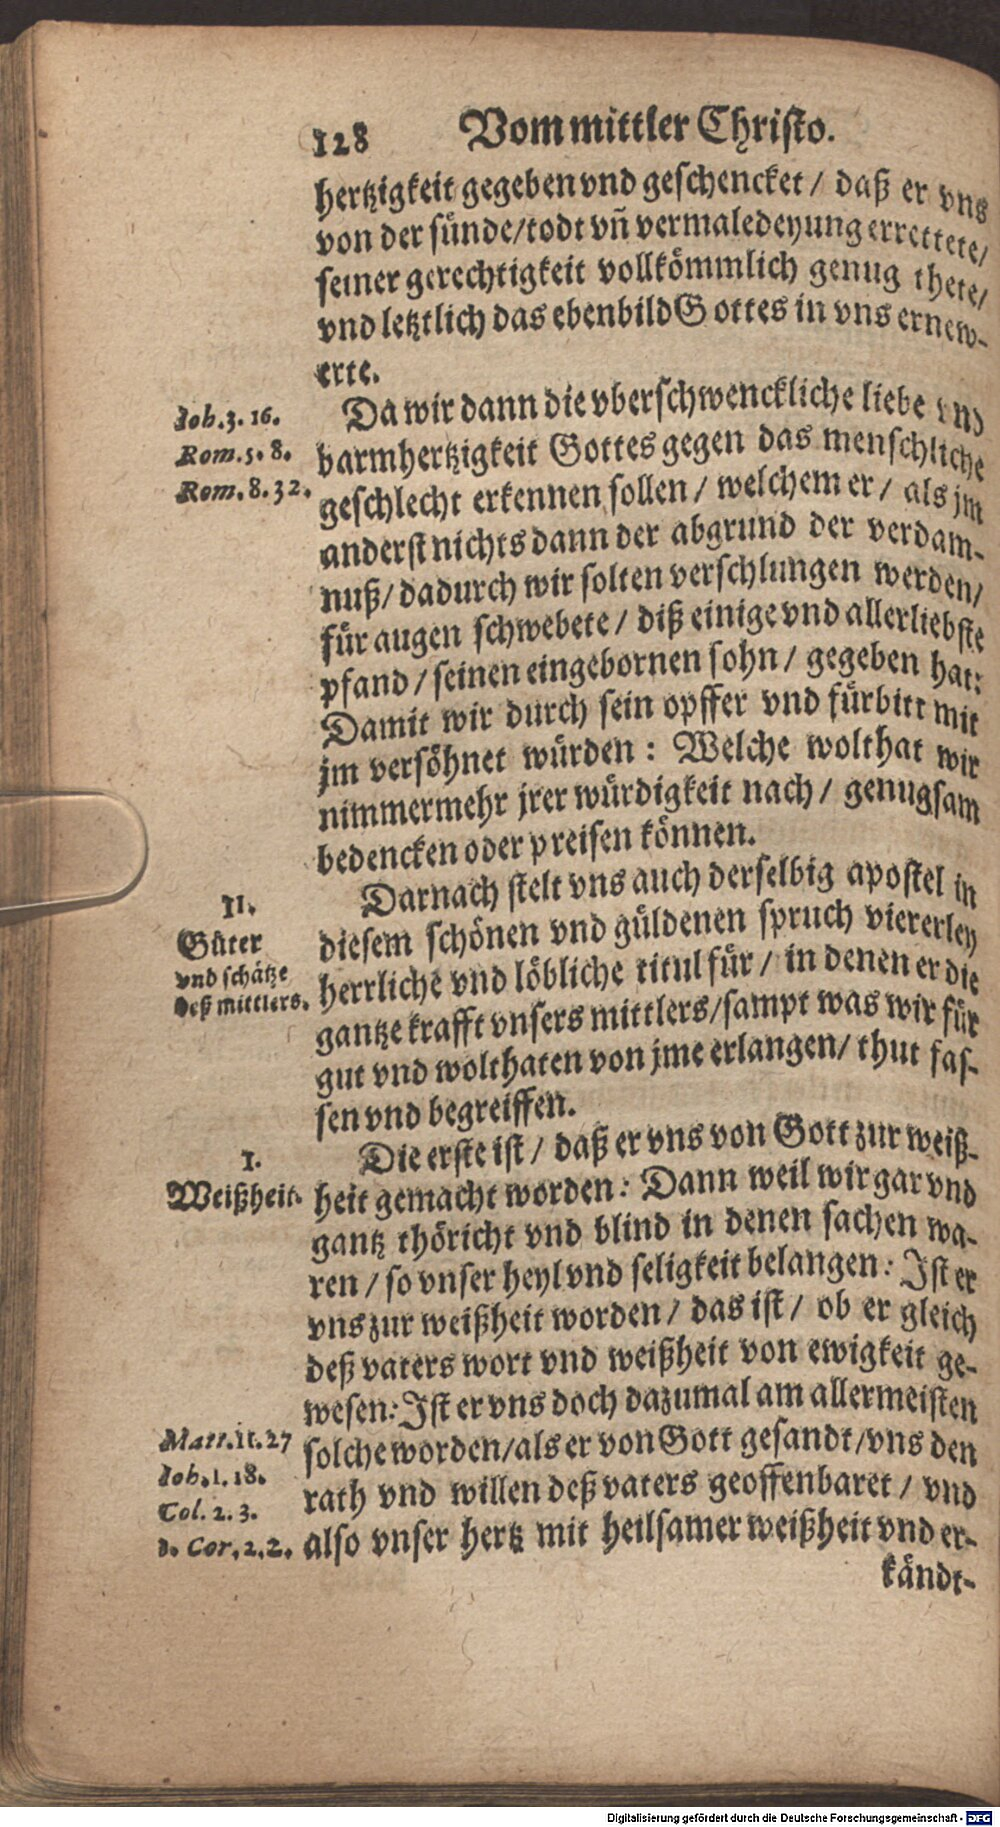 128 Vom mittler Christo.
hertzigkeit gegeben vnd geschencket / daß er vns
von der sünde/todt vñ vermaledeyung errettete/
seiner gerechtigkeit vollkömmlich genug thete/
vnd letztlich das ebenbild Gottes in vns ernew-
erte.
Joh. 3. 16.
Rom. 5. 8.
Rom. 8. 32.
Da wir dann die vberschwenckliche liebe vnd
barmhertzigkeit Gottes gegen das menschliche
geschlecht erkennen sollen / welchem er / als jm
anderst nichts dann der abgrund der verdam-
nuß/ dadurch wir solten verschlungen werden/
für augen schwebete / diß einige vnd allerliebste
pfand / seinen eingebornen sohn / gegeben hat:
Damit wir durch sein opffer vnd fürbitt mit
jm versöhnet würden : Welche wolthat wir
nimmermehr jrer würdigkeit nach / genugsam
bedencken oder preisen können.
II.
Güter
vnd schätze
deß mittlers.
Darnach stelt vns auch derselbig apostel in
diesem schönen vnd güldenen spruch viererley
herrliche vnd löbliche titul für / in denen er die
gantze krafft vnsers mittlers/sampt was wir für
gut vnd wolthaten von jme erlangen/ thut fas-
sen vnd begreiffen.
1.
Weißheit.
Die erste ist / daß er vns von Gott zur weiß-
heit gemacht worden : Dann weil wir gar vnd
gantz thöricht vnd blind in denen sachen wa-
ren / so vnser heyl vnd seligkeit belangen : Ist er
vns zur weißheit worden / das ist / ob er gleich
deß vaters wort vnd weißheit von ewigkeit ge-
wesen : Ist er vns doch dazumal am allermeisten
solche worden/als er von Gott gesandt/vns den
rath vnd willen deß vaters geoffenbaret / vnd
also vnser hertz mit heilsamer weißheit vnd er-
Matt. 11. 27
Joh. 1. 18.
Col. 2. 3.
1. Cor. 2. 2.
kändt-
Digitalisierung gefördert durch die Deutsche Forschungsgemeinschaft - DFG